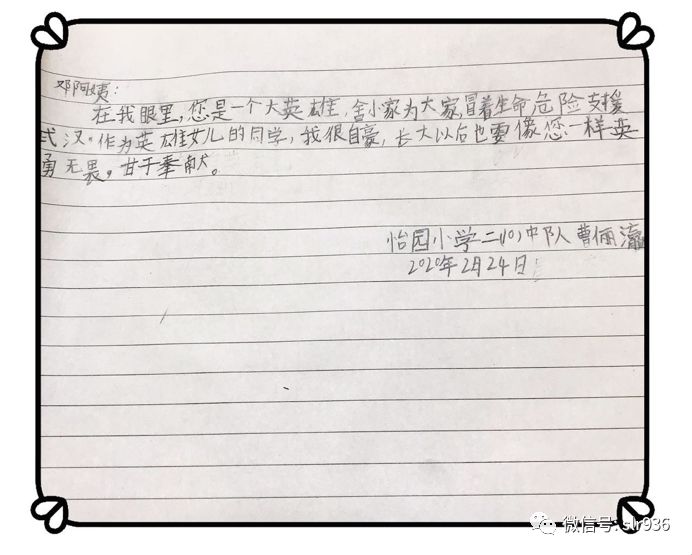 邓阿姨:
在我眼里,您是一个大英雄,舍小家为大家,冒着生命危险支援
武汉。作为英雄女儿的同学,我很自豪,长大以后也要像您一样英
勇无畏,甘于奉献。
怡园小学二(10)中队 曹俪瀛
2020年2月24日
微信号: slr936